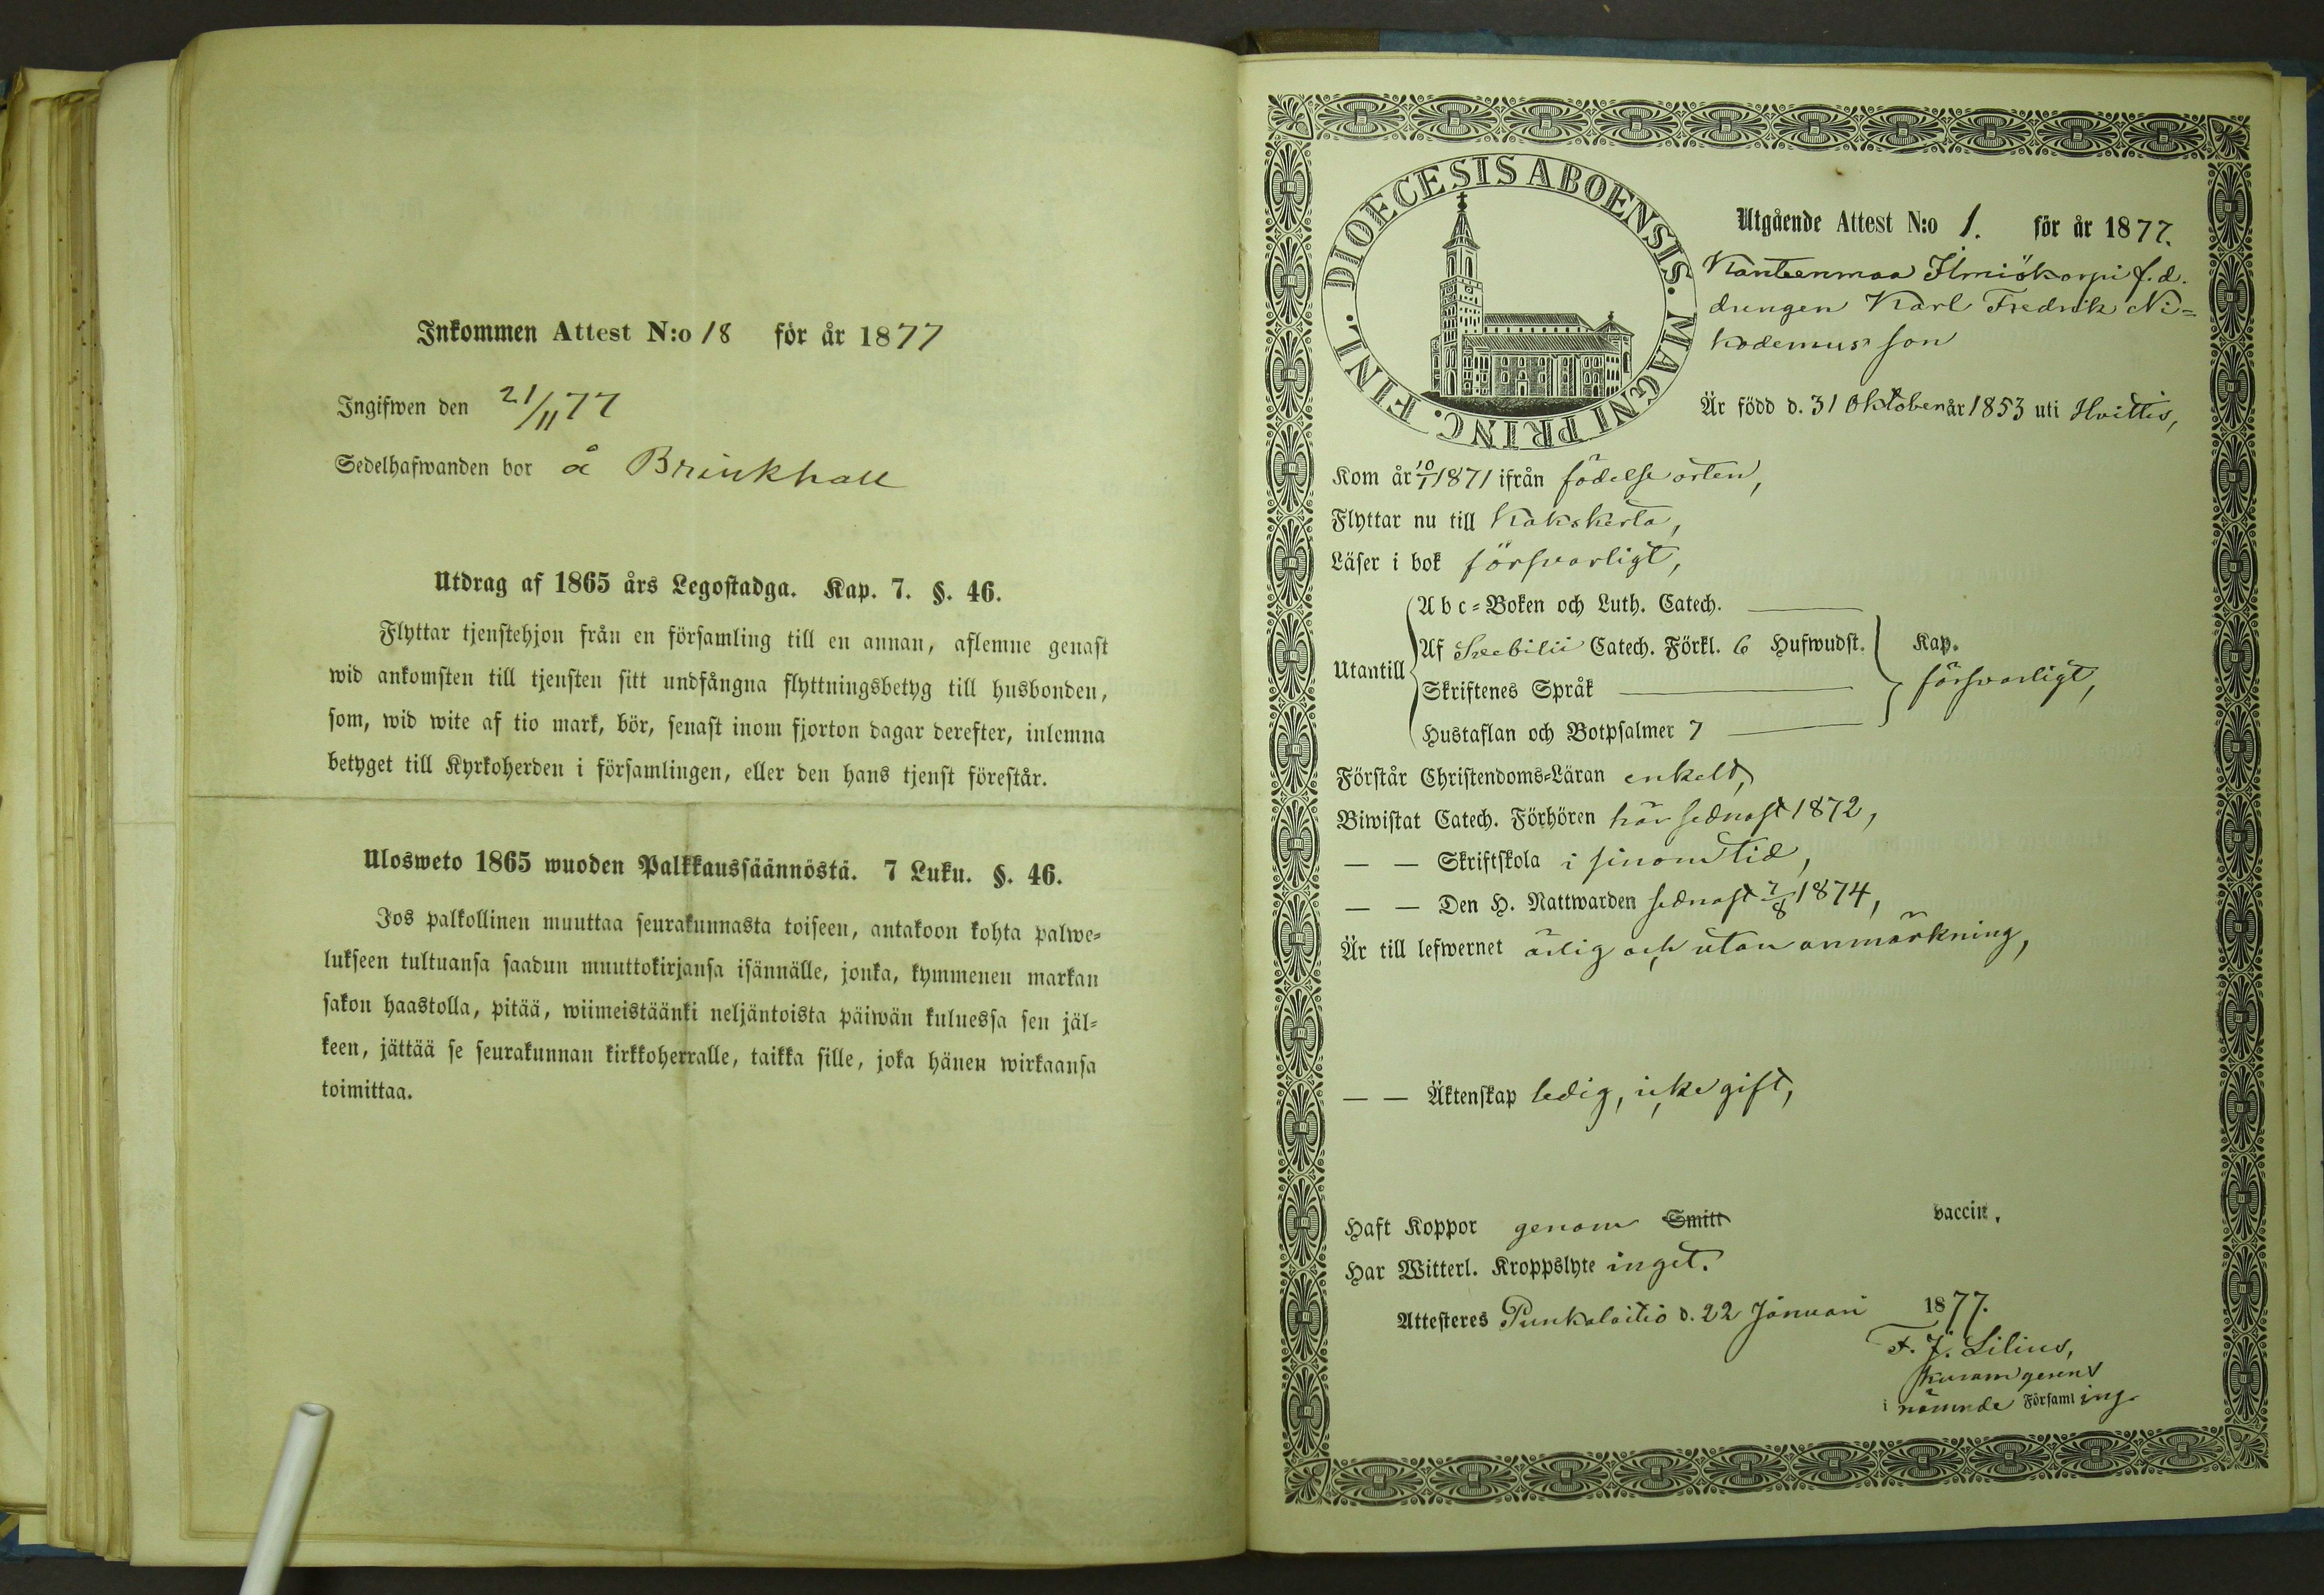 Inkommen Attest N:o 18 för år 1877
Ingifwen den 21/11 77
Sedelhafwanden bor å Brinkhall
Utdrag af 1865 års Legostadga. Kap. 7. §. 46.
Flyttar tjenstehjon från en församling till en annan, aflemne genast
wid ankomsten till tjensten sitt undfångna flyttningsbetyg till husbonden,
som, wid wite af tio mark, bör, senast inom fjorton dagar derefter, inlemna
betyget till Kyrkoherden i församlingen, eller den hans tjenst förestår.
Ulosweto 1865 wuoden Palkkaussäännöstä. 7 Luku. §. 46.
Jos palkollinen muuttaa seurakunnasta toiseen, antakoon kohta palwe=
lukseen tultuansa saadun muuttokirjansa isännälle, jonka, kymmenen markan
sakon haastolla, pitää, wiimeistäänki neljäntoista päiwän kuluessa sen jäl=
keen, jättää se seurakunnan kirkkoherralle, taikka sille, joka hänen wirkaansa
toimittaa.
DIOECESIS ABOENSIS. MAGNI PRINC. FINL.
Utgående Attest N:o 1. för år 1877.
Kanteenmaa Ilmiökorpi f.d.
drengen Karl Fredrik Ni=
kodemus son
Är född d. 31 Oktober år 1853 uti Hvittis,
Kom år 10/1 1871 ifrån födelse orten,
Flyttar nu till Kakskerta,
Läser i bok försvarligt,
Utantill
Abc=Boken och Luth. Catech.
Af Svebilii Catech. Förkl. 6 Hufwudst.
Skriftenes Språk
Hustaflan och Botpsalmer 7
Kap.
försvarligt,
Förstår Christendoms=Läran enkelt,
Biwistat Catech. Förhören här sednast 1872,
— — Skriftskola i sinom tid,
— — Den H. Nattwarden sednast 7/8 1874,
Är till lefwernet ärlig och utan anmärkning,
— — Äktenskap ledig, icke gift,
Haft Koppor genom Smitt vaccin.
Har Witterl. Kroppslyte inget.
Attesteres Punkalaitio d. 22 Januari 1877.
F. J. Lilius,
kuram gerens
i nämnde Församling